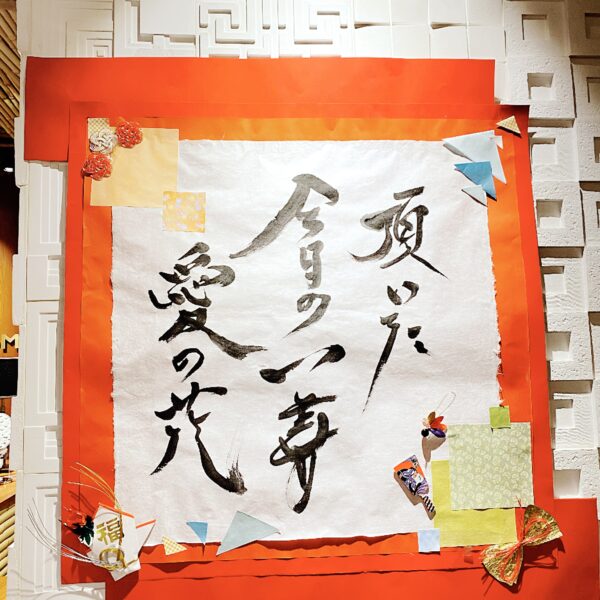 頂いた
今日の一寿
愛の花
福